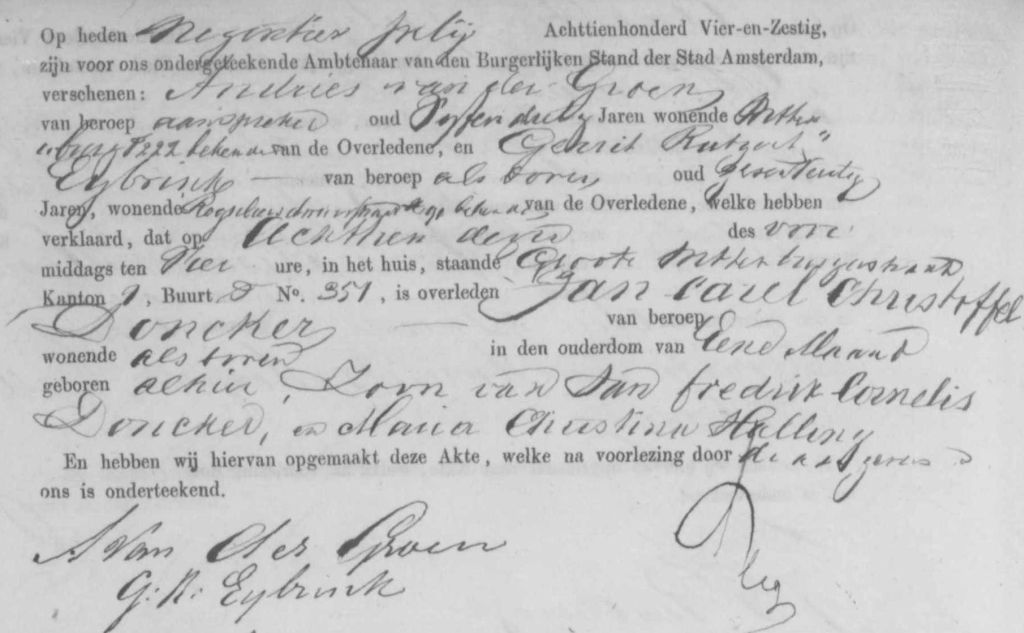 Op heden Negentien Julij Achttienhonderd Vier-en-Zestig,
zijn voor ons ondergeteekende Ambtenaar van den Burgerlijken Stand der Stad Amsterdam,
verschenen: Andries van der Groen
van beroep aanspreker oud Jaren wonende Witten
burg 222 bekende van de Overledene, en Gerrit Rutgert
Eybrink van beroep als boven oud
Jaren, wonende bekende van de Overledene, welke hebben
verklaard, dat op Achttien dezer des voor
middags ten Vier ure, in het huis, staande Groote Wittenburgerstraat
Kanton 1, Buurt D No. 351, is overleden Jan Carel Christoffel
Doncker van beroep
wonende als boven in den ouderdom van Eene Maand
geboren alhier, Zoon van Jan Fredrik Cornelis
Doncker, en Maria Christina Halling
En hebben wij hiervan opgemaakt deze Akte, welke na voorlezing door de aangevers
ons is onderteekend.
A Van der Groen
G. R. Eybrink